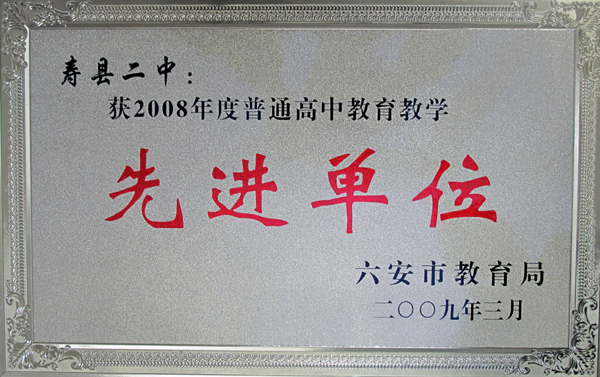 寿县二中：
获2008年度普通高中教育教学
先进单位
六安市教育局
二〇〇九年三月